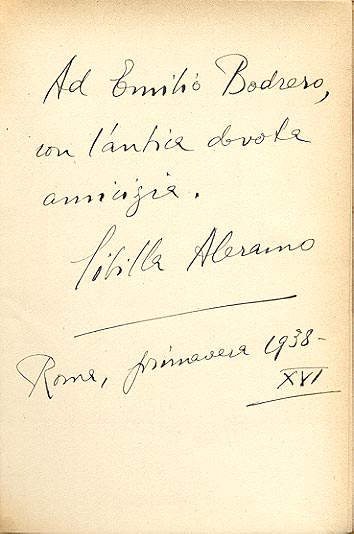 Ad Emilio Bodrero,
con l'antica devota
amicizia.
Sibilla Aleramo
Roma, primavera 1938-
XVI